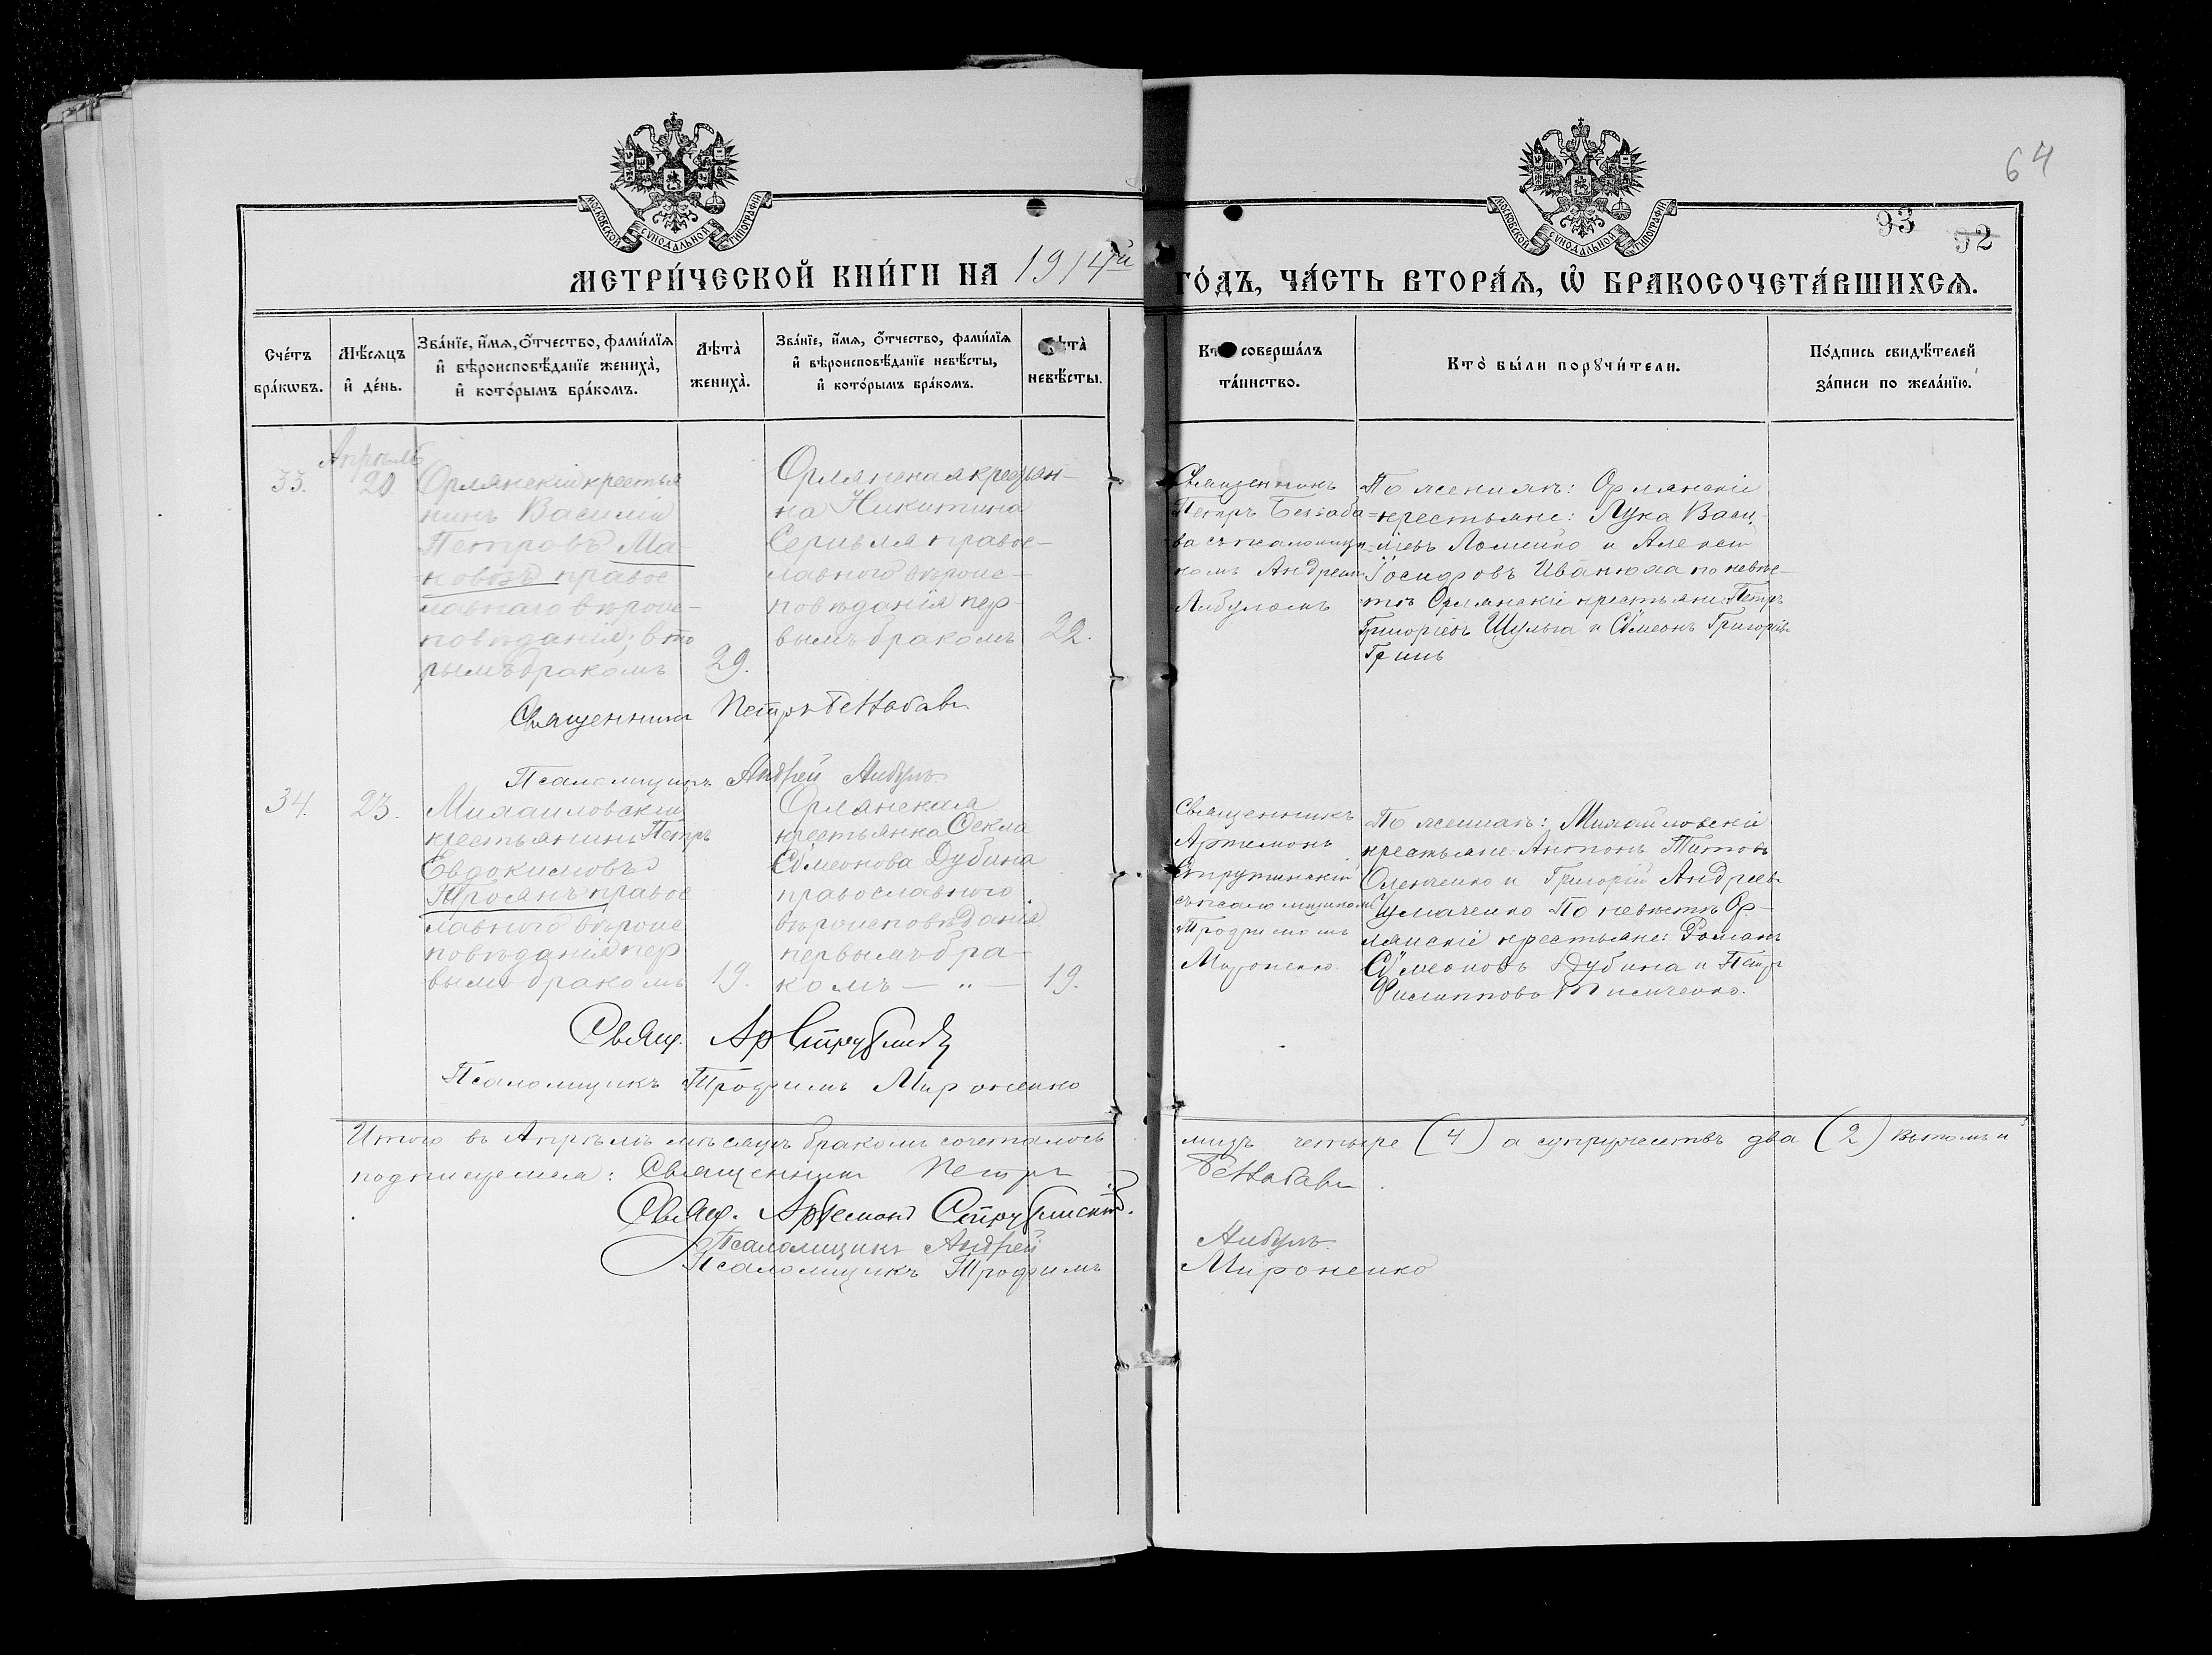 64
93
52
МОСКОВСКОЙ СѴНОДАЛЬНОЙ ТИПОГРАФІИ
МОСКОВСКОЙ СѴНОДАЛЬНОЙ ТИПОГРАФІИ
МЕТРИ́ЧЕСКОЙ КНИ́ГИ НА 1914й
ГО́ДЪ, ЧА́СТЬ ВТОРА́Ѧ, Ѽ БРАКОСОЧЕТА́ВШИХСѦ.
Сче́тъ бра́кѡвъ.
Мѣ́сяцъ и҆ де́нь.
Зва́нїе, и҆́мѧ, ѻ҆́тчество, фами́лїѧ
и҆ вѣроисповѣ́данїе жениха̀,
и҆ кото́рымъ бра́комъ.
Лѣта̀ жениха̀.
Зва́нїе, и҆́мѧ, ѻ҆́тчество, фами́лїѧ
и҆ вѣроисповѣ́данїе невѣ́сты,
и҆ кото́рымъ бра́комъ.
Лѣта̀ невѣ́сты.
Кто̀ соверша́лъ
та́инство.
Кто̀ бы́ли порꙋчи́тели.
По́дпись свидѣ́телей
за́писи по жела́нїю.
33.
Апрѣль
20.
Орлянскій крестья
нинъ Василій
Петровъ Ма-
ковозъ правос
лавнаго вѣроис-
повѣданія, вто
рымъ бракомъ
29.
Орлянская крестьян-
ка Никитина
православнаго вѣроис-
повѣданія пер-
вымъ бракомъ
22.
Священникъ
Петръ Беззаба-
ва съ псаломщи-
комъ Андреемъ
По женихѣ: Орлянскіе
крестьяне: Лука Васи-
ліевъ Ломейко и Алексѣй
Іосифовъ Иванюха по невѣс-
тѣ Орлянскіе крестьяне: Петръ
Григоріевъ Шульга и Сѵмеонъ Григоріев
Гринь
Священникъ Петръ Беззабава
Псаломщикъ Андрей
34.
23.
Михайловскій
крестьянинъ Петръ
Евдокимовъ
Троянъ правос
лавного вѣроис
повѣданія пер
вымъ бракомъ
19.
Орлянская
крестьянка Ѳекла
Сѵмеонова Дубина
православного
вѣроисповѣданія
первымъ бра-
комъ — „ —
19.
Священникъ
Артемонъ
Струтинскій
съ псаломщикомъ
Трофимомъ
Мироненко
По женихѣ: Михайловскіе
крестьяне Антонъ Титовъ
Оленченко и Григорій Андреевъ
Чумаченко По невѣстѣ Ор-
лянскіе крестьяне: Романъ
Сѵмеоновъ Дубина и Петръ
Филипповъ Тимченко.
Свящ. Ар Струтинскій
Псаломщикъ Трофимъ Мироненко
Итого въ Апрѣлѣ мѣсяцѣ бракомъ сочеталось лицъ четыре (4) а супружествъ два (2) въ томъ и
подписуемся: Священникъ Петръ Беззабава
Свящ. Артемонъ Струтинскій.
Псаломщикъ Андрей
Псаломщикъ Трофимъ Мироненко